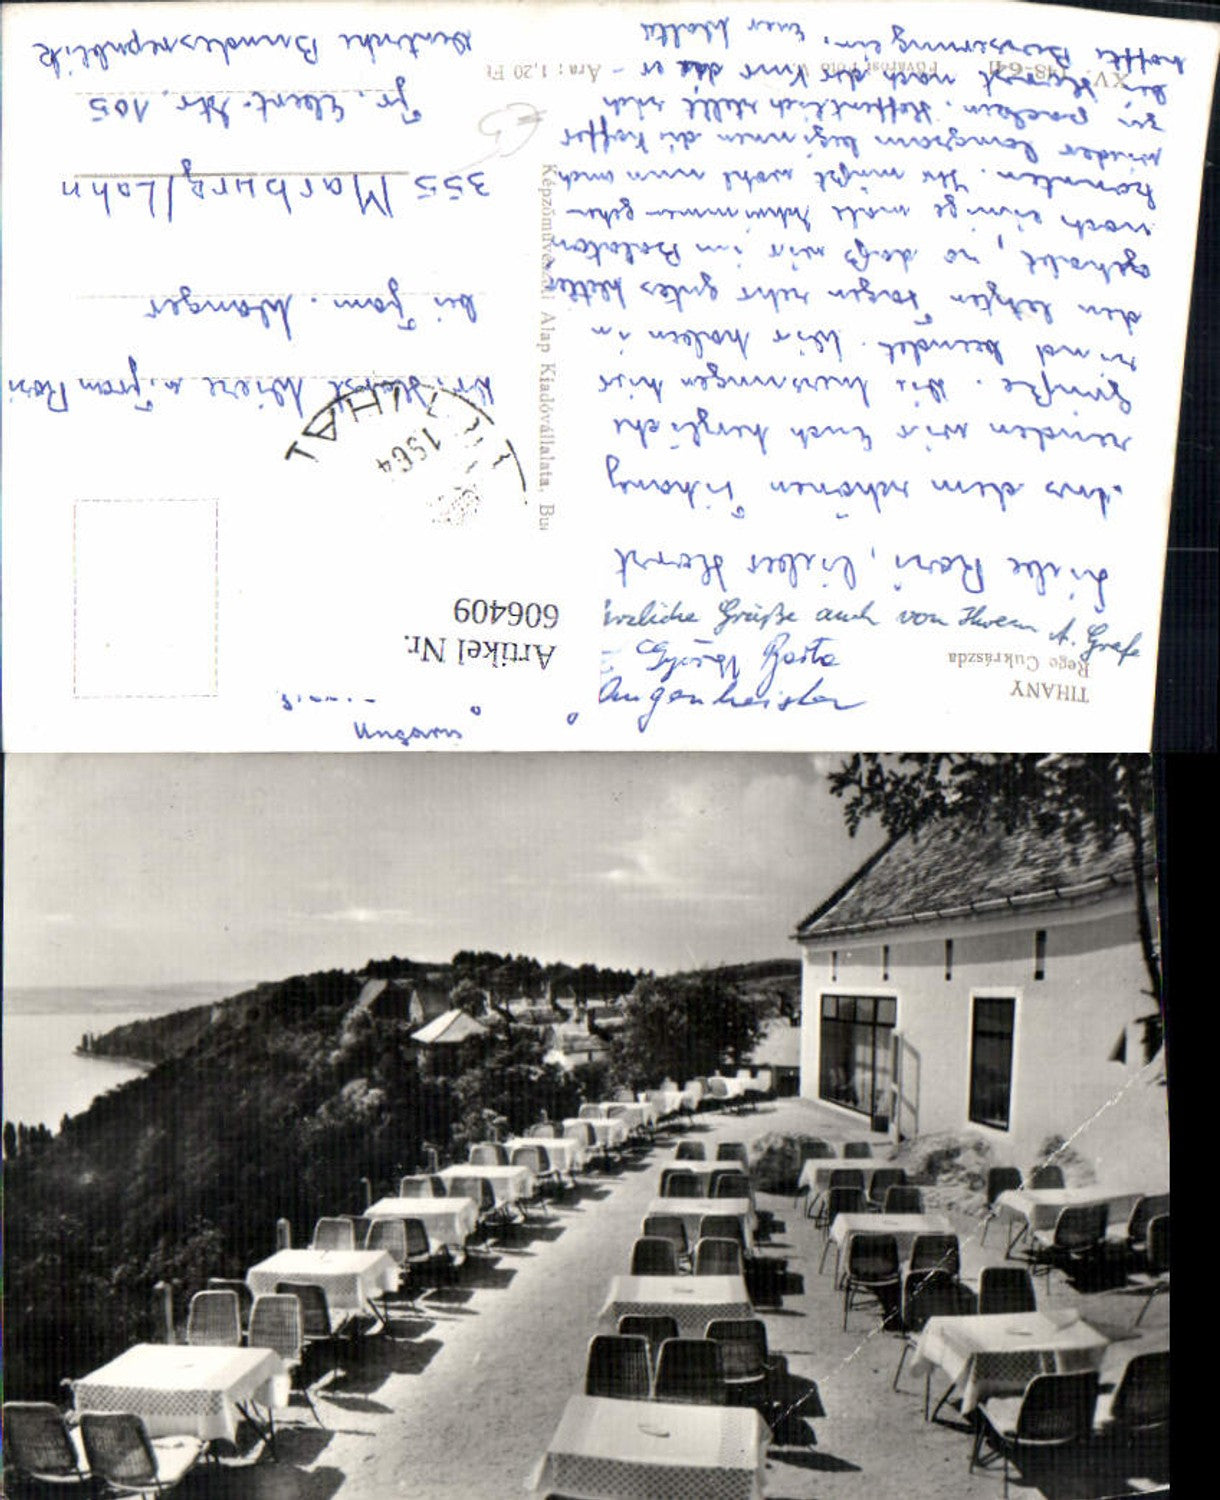 TIHANY
Rege Cukrászda
Liebe Rosi, lieber Horst
Aus dem schönen Tihany
senden wir Euch herzliche
Grüße. Die Messungen hier
sind beendet. Wir haben in
den letzten Tagen sehr gutes Wetter
gehabt, so daß wir im Balaton
noch einige male schwimmen gehen
konnten. Ihr müßt wohl nun auch
wieder langsam beginnen die Koffer
zu packen. Hoffentlich stellt sich
bei Horst nach der Kur die er-
hoffte Besserung ein. Euer Walter
Herzliche Grüße auch von Ihrem A. Grafe
György Barta
Angenheister
Artikel Nr.
606409
TIHANY
1964
Horst Wiese u. Frau Rosi
bei Fam. Wanger
355 Marburg/Lahn
Fr. Ebert-Str. 105
Deutsche Bundesrepublik
Képzőművészeti Alap Kiadóvállalata, Bu
Fővárosi Fotó
Ára: 1,20 Ft